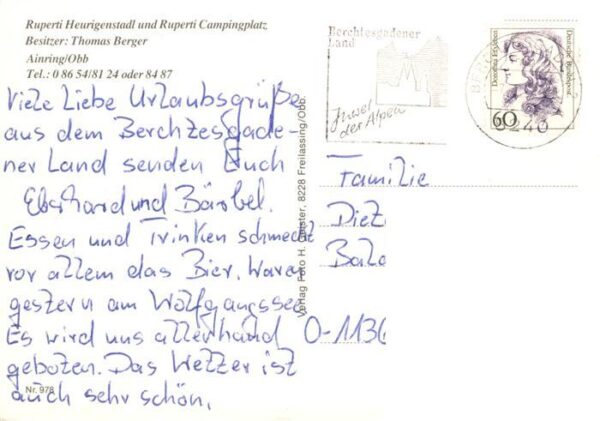 Ruperti Heurigenstadl und Ruperti Campingplatz
Besitzer: Thomas Berger
Ainring/Obb
Tel.: 0 86 54/81 24 oder 84 87
Viele Liebe Urlaubsgrüße
aus dem Berchtesgade-
ner Land senden Euch
Eberhard und Bärbel.
Essen und Trinken schmeckt
vor allem das Bier. Waren
gestern am Wolfgangssee
Es wird uns allerhand
geboten. Das Wetter ist
auch sehr schön.
Nr. 978
Verlag Foto H. 8228 Freilassing/Obb.
Berchtesgadener
Land
Juwel
der Alpen
Dorothea Erxleben
Deutsche Bundespost
60
Familie
Diez
O-1136